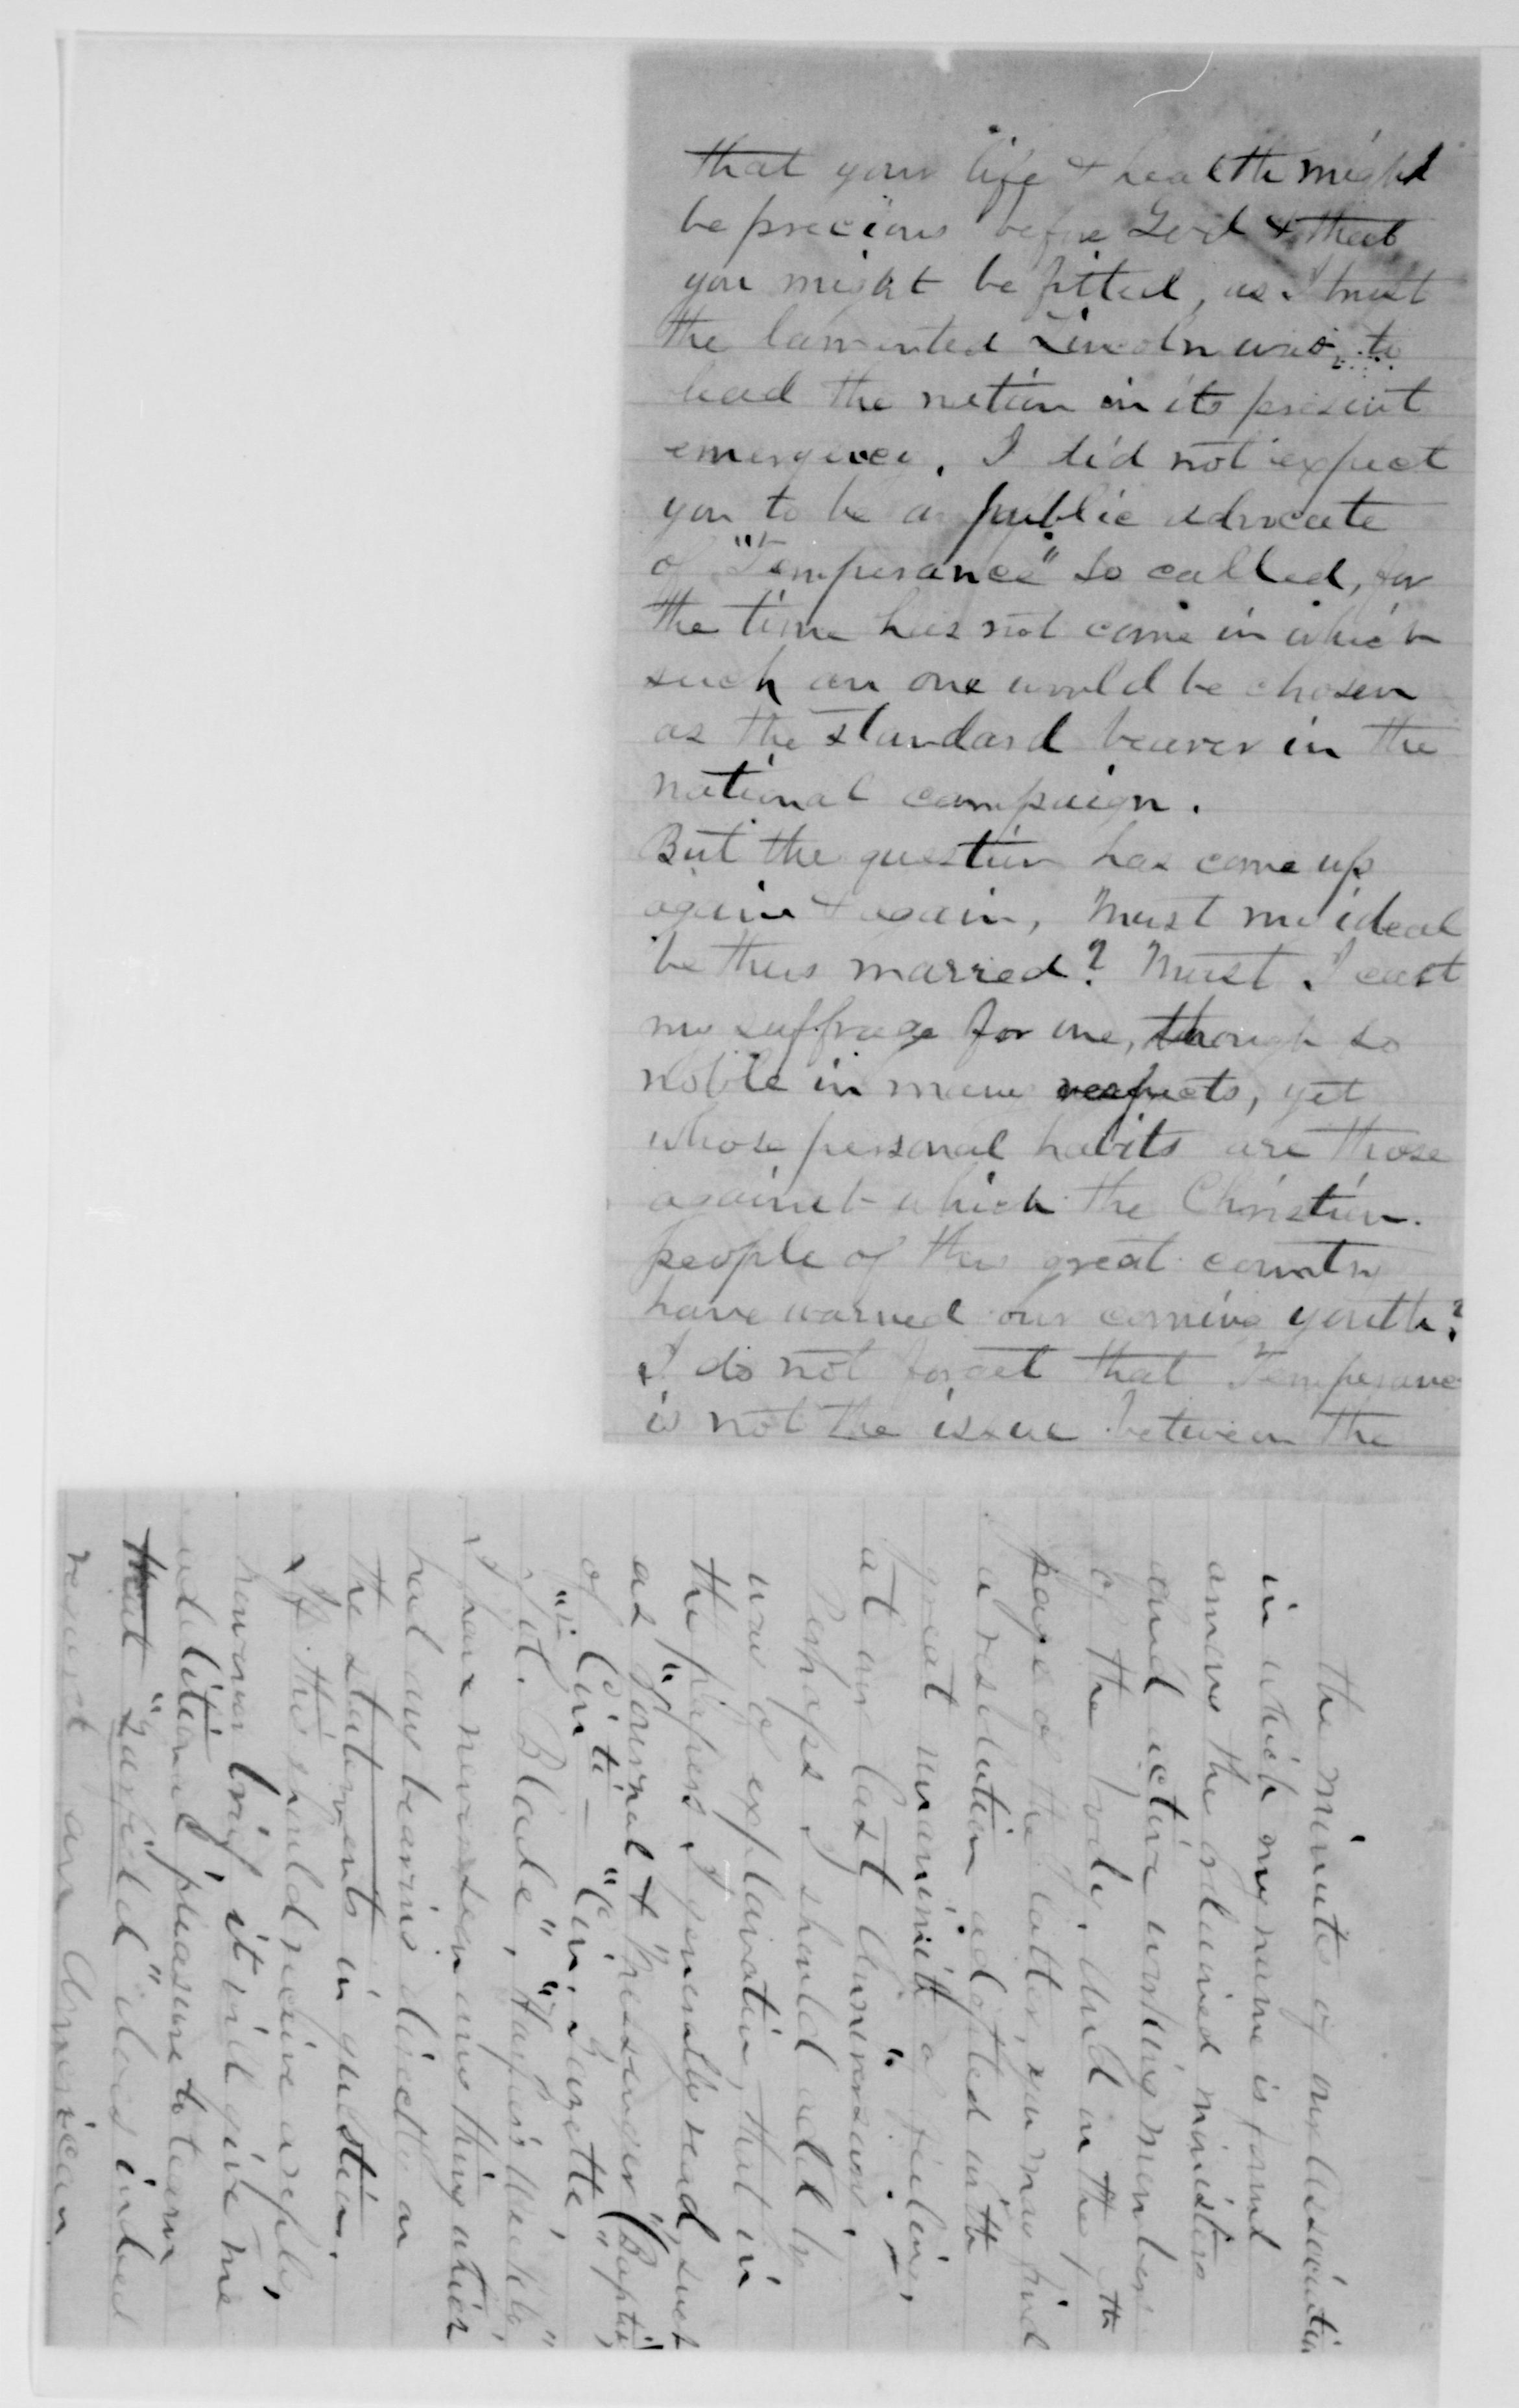 that your life & health might
be precious before God & that
you might be fitted, as I trust
the lamented Lincoln was, to
lead the nation in its present
emergency. I did not expect
you to be a public advocate
of "Temperance" so called, for
the time has not come in which
such an one would be chosen
as the standard bearer in the
national campaign.
But the question has come up
again & again, Must my ideal
be thus marred? Must I cast
my suffrage for one, though so
noble in many respects, yet
whose personal habits are those
against which the Christian
people of this great country
have warned our coming youth?
I do not forget that Temperance
is not the issue between the
the minutes of our Association
in which my name is found
among the ordained ministers
and active working members
of the body. And on the
page of the latter, you may find
a resolution adopted with
great unanimity of feeling,
at our last Anniversary.
Perhaps I should add by
way of explanation, that in
the papers I generally read, such
as "Journal & Messenger" (Baptist)
of Cinti - "Cin. Gazette"
"Blade", "Harper's Weekly"
I have never seen any thing which
had any bearing directly on
the statements in question.
If this should receive a reply,
however brief it will give me
additional pleasure to learn
that "Garfield" does indeed
respect an American